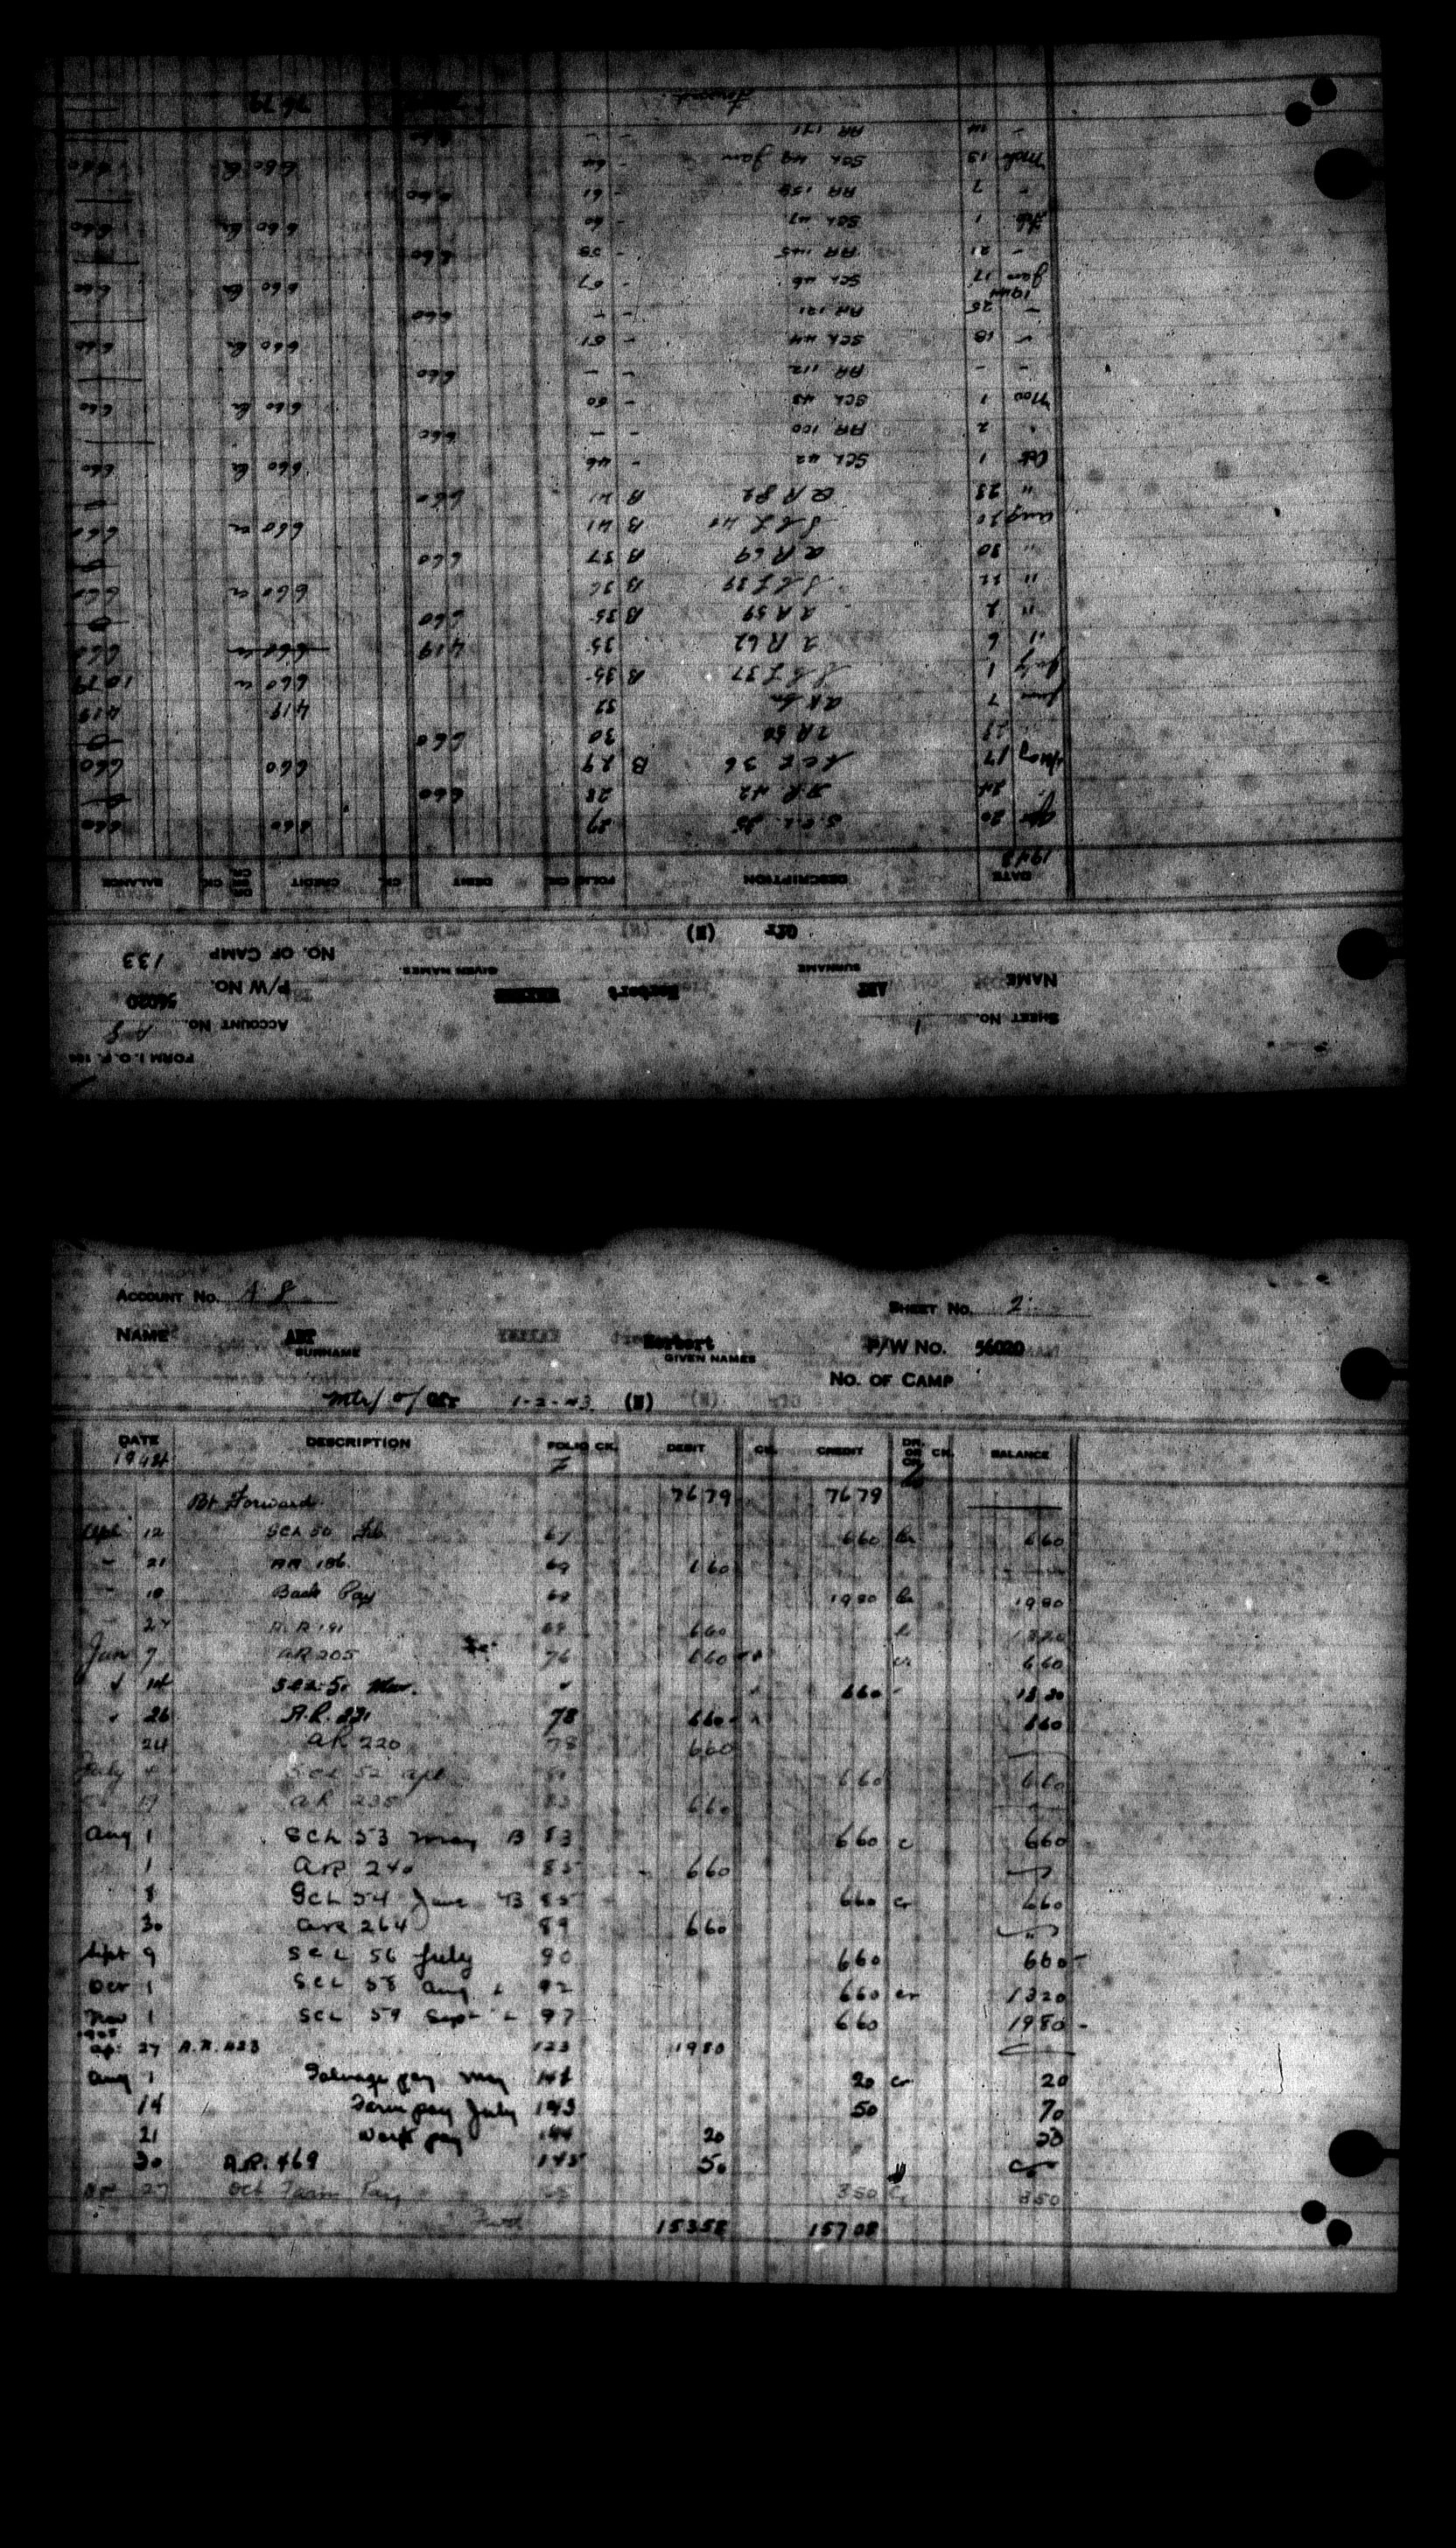 FORM I.O.P. 
ACCOUNT No. A 8
SHEET No. 1
P/W No. 56020
NAME Herbert
SURNAME GIVEN NAMES
NO. OF CAMP 133
Ofr (N)
DATE DESCRIPTION FOLIO CK. DEBIT CK. CREDIT DR. OR CR. CK. BALANCE
1943
Apr 20 S.C.L. 35 27 660 660
24 A.R. 42 28 660
May 17 S C L 36 B 29 660 660
27 A R 50 30 660
June 7 32 419 419
July 1 S C L 37 B 35 660 cr 1079
" 6 A R 62 35 419 660
" 2 A R 59 B 35 660 0
" 22 S C L 39 B 36 660 cr 660
" 30 A R 69 B 37 660 0
Aug 20 S C L 40 B 41 660 cr 660
" 23 A R 82 B 41 660 0
Oct 1 SCL 42 - 46 660 Cr 660
" 2 AR 100 - - 660
Nov 1 SCL 43 - 50 660 Cr 660
- - AR 112 - - 660
- 18 SCL 44 - 51 660 Cr 660
- 25 AR 121 - - 660
1944
Jan 17 SCL 46 - 57 660 Cr 660
- 21 AR 145 - 58 660
Feb 1 SCL 47 - 60 660 Cr 660
- 7 AR 158 - 61 660
Mch 13 SCL 49 Jan - 64 660 Cr 660
- 14 AR 171 - - 660
Forward 7679
ACCOUNT No. A 8
SHEET No. 2
NAME ABT Herbert P/W No. 56020
SURNAME GIVEN NAMES
NO. OF CAMP
Mtr/ o/ Ofr 1-2-43 (N)
DATE DESCRIPTION FOLIO CK. DEBIT CK. CREDIT DR. OR CR. CK. BALANCE
1944
Bt Forward 7679 7679
Apl 12 SCL 50 Feb 67 660 Cr 660
- 21 AR 186 69 660
- 18 Back Pay 68 1980 Cr 1980
- 24 A.R 191 69 660 1320
Jun 7 AR 205 76 660 cr 660
14 SCL 51 Mar. 660 1320
26 A.R. 221 78 660 660
24 AR 220 78 660
July 4 SCL 52 apl 660 660
19 AR 235 83 660
Aug 1 SCL 53 May B 83 660 c 660
1 AR 240 85 660
8 SCL 54 June B 85 660 cr 660
30 AR 264 89 660
Sept 9 SCL 56 July 90 660 660
Oct 1 SCL 58 Aug 92 660 cr 1320
Nov 1 SCL 59 Sept 97 660 1980
1945
Ap. 27 A.R. 423 123 1980
Aug 1 Salvage pay May 141 20 cr 20
14 Farm pay July 143 50 70
21 Work pay 144 20
30 A.R. 469 145 50
27 Oct Farm Pay 350 Cr 350
Fwd 15358 15708